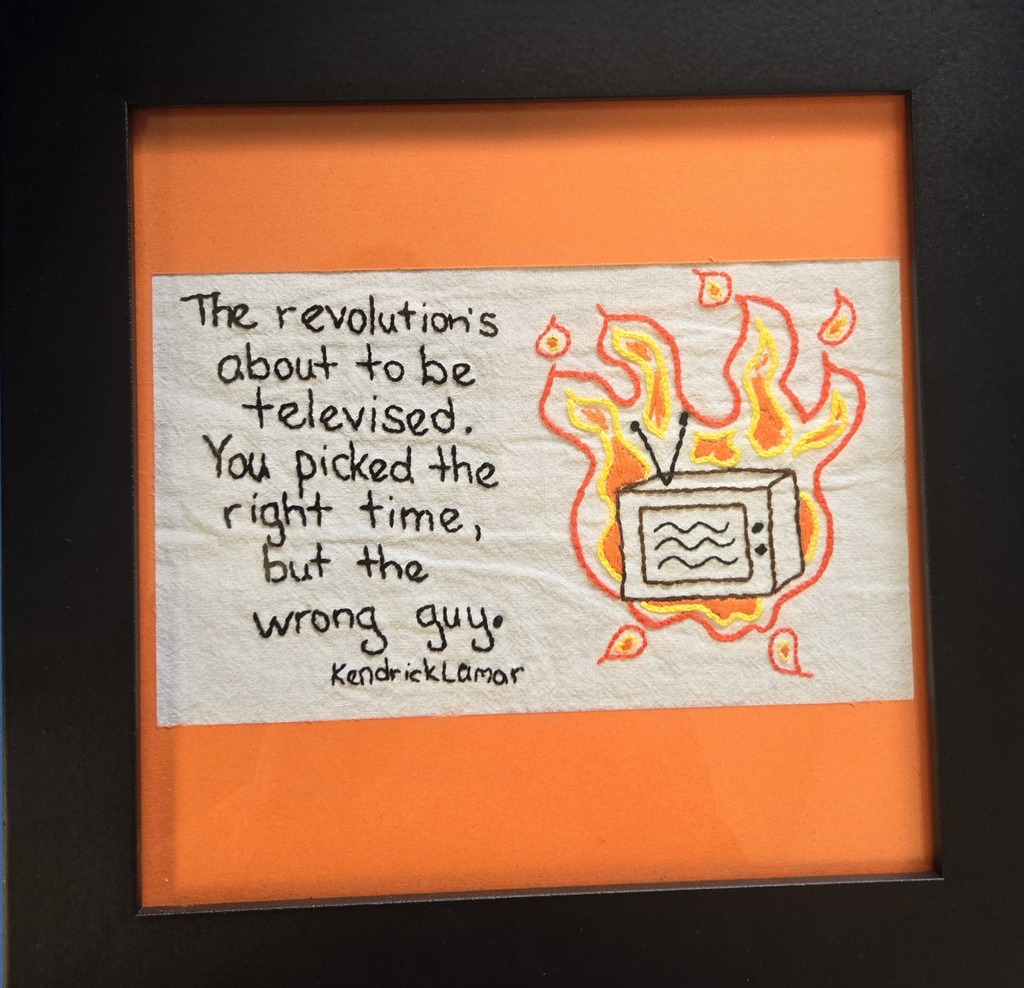 The revolution's
about to be
televised.
You picked the
right time,
but the
wrong guy.
Kendrick Lamar